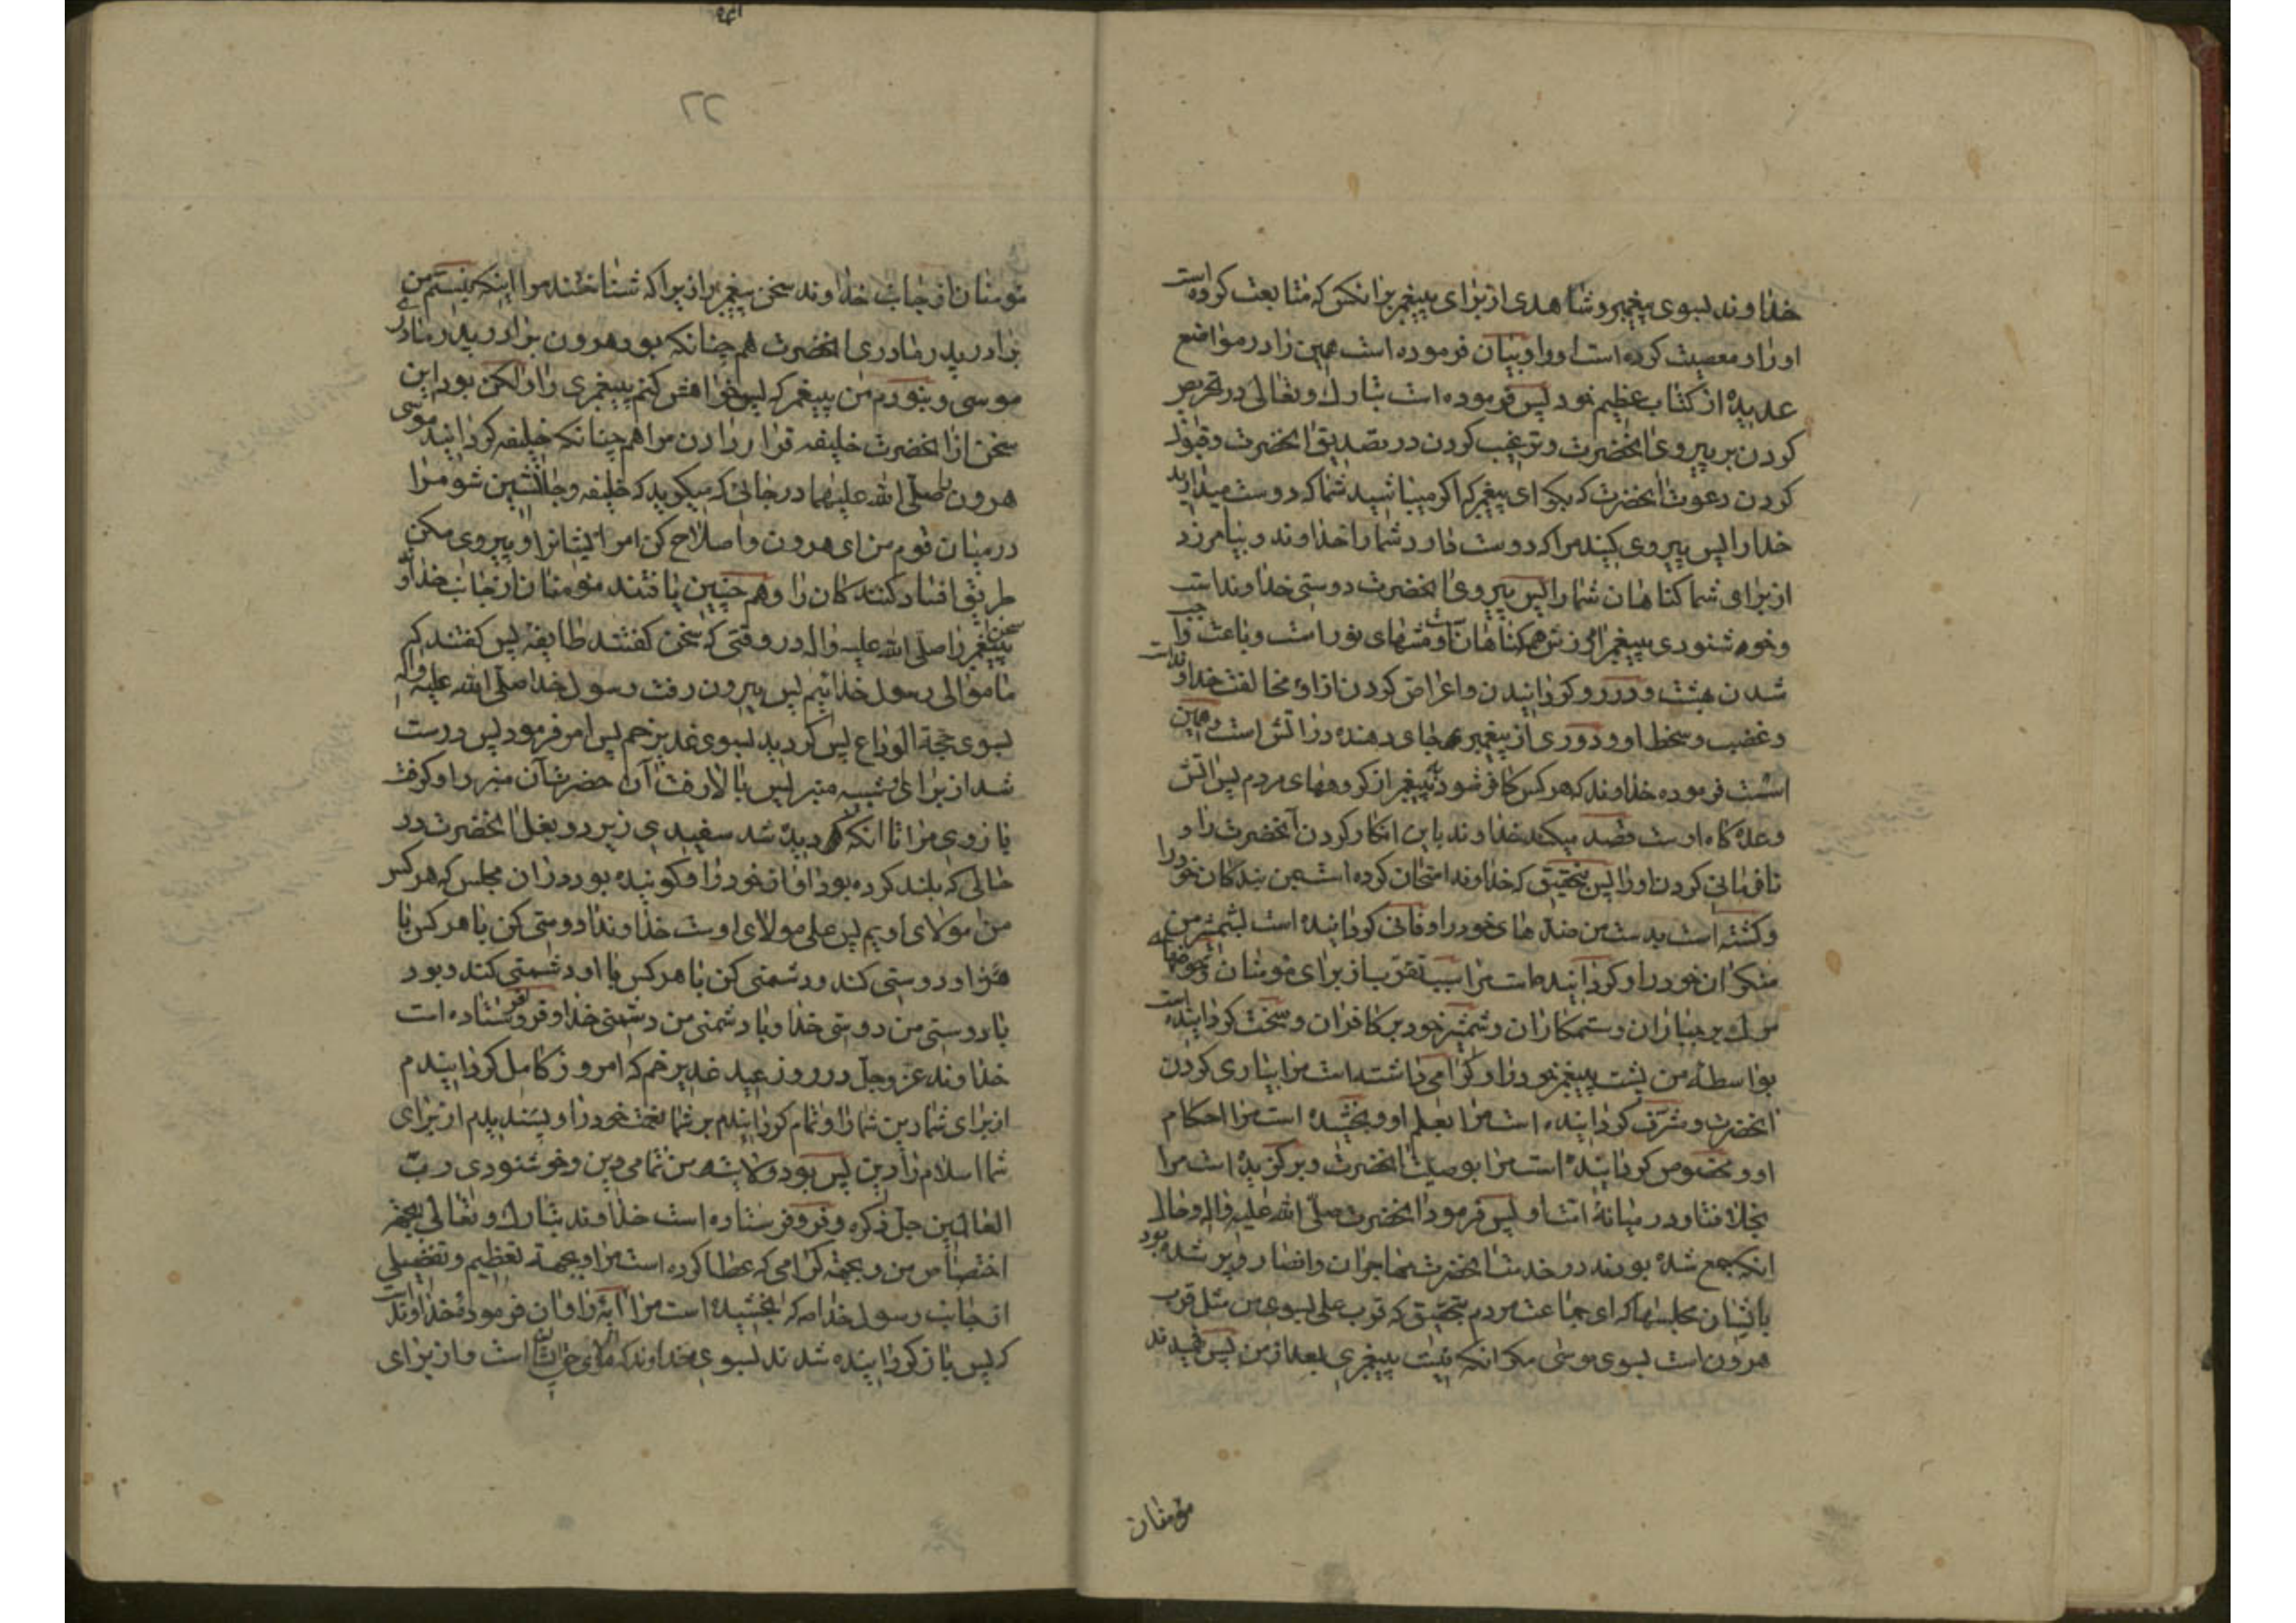 خداوند بسوی پیغمبر و شاهدی از برای پیغمبر بر انکس که متابعت کرده است
او را و معصیت کرده است او را و بیان فرموده است همین را در مواضع
عدیده از کتاب عظیم خود پس فرموده است تبارک و تعالی در تحریص
کردن بر پیروی انحضرت و ترغیب کردن در تصدیق انحضرت و قبول
کردن دعوت انحضرت که بکو ای پیغمبر که اکر میباشید شما که دوست میدارید
خدا را پس پیروی کنید مرا که دوست دارد شما را خداوند و بیامرزد
از برای شما کناهان شما را پس پیروی انحضرت دوستی خداوند است
و خوشنودی پیغمبر امرزش همه کناهان و منتهای نور است و باعث واجب
شدن بهشت و در رو کردانیدن و اعراض کردن از او مخالفت خداوند است
و غضب و سخط او و دوری از پیغمبر جای دهنده در اتش است و همین
است فرموده خداوند که هر کس کافر شود به پیغمبر از کروههای مردم پس اتش
وعده کاه اوست قصد میکند خداوند باین انکار کردن آنحضرت را و
نافرمانی کردن او را پس بتحقیق که خداوند امتحان کرده است بمن بندکان خود را
و کشته است بدست من ضدهای خود را و فانی کردانیده است بشمشیر من
منکران خود را و کردانیده است مرا سبب تقرب از برای مؤمنان و حوضهای
مرک بر جباران و ستمکاران و شمشیر خود بر کافران و سخت کردانیده است
بواسطه من پشت پیغمبر خود را و کرامی داشته است مرا بیاری کردن
انحضرت و مشرف کردانیده است مرا بعلم او و بخشیده است مرا احکام
او و مخصوص کردانیده است مرا بوصیت انحضرت و برکزیده است مرا
بخلافت او در میانه امت او پس فرمود انحضرت صلی الله علیه و اله و حال
انکه جمع شده بودند در خدمت انحضرت مهاجران و انصار و پر شده بود
بایشان مجلسها که ای جماعت مردم بتحقیق که قرب علی بسوی من مثل قرب
هرون است بسوی موسی مکر انکه نیست پیغمبری بعد از من پس فهمیدند
مؤمنان
۲۲
مؤمنان از جانب خداوند سخن پیغمبر را زیرا که شناختند مرا اینکه نیستم من
برادر پدر مادری انحضرت هم چنانکه بود هرون برادر پدر مادری
موسی و نبودم من پیغمبر که پس خواهش کنم پیغمبری را و لکن بود این
سخن از انحضرت خلیفه قرار دادن مرا هم چنانکه خلیفه کردانید موسی
هرون را صلی الله علیهما در جائی که میکوید که خلیفه و جانشین شو مرا
در میان قوم من ای هرون و اصلاح کن امر ایشانرا و پیروی مکن
طریق افساد کنندکان را و هم چنین یافتند مؤمنان از جانب خداوند
سخن پیغمبر را صلی الله علیه و اله در وقتی که سخن کفتند طایفه پس کفتند که
ما موالی رسول خدائیم پس بیرون رفت رسول خدا صلی الله علیه و اله
بسوی حجة الوداع پس کردید بسوی غدیر خم پس امر فرمود پس درست
شد از برای او شبیه منبر پس بالا رفت آن حضرت آن منبر را و کرفت
بازوی مرا تا انکه دیده شد سفیدی زیر دو بغل انحضرت در
حالی که بلند کرده بود اواز خود را و کوینده بود در ان مجلس که هر کس
من مولای اویم پس علی مولای اوست خداوندا دوستی کن با هر کس با
او دوستی کند و دشمنی کن با هر کس با او دشمنی کند و بود
با دوستی من دوستی خدا و با دشمنی من دشمنی خدا و فرو فرستاده است
خداوند عز و جل در روز عید غدیر خم که امروز کامل کردانیدم
از برای شما دین شما را و تمام کردانیدم بر شما نعمت خود را و پسندیدم از برای
شما اسلام را دین پس بود ولایت من تمامی دین و خوشنودی رب
العالمین جل ذکره و فرو فرستاده است خداوند تبارک و تعالی بجهة
اختصاص من و بجهة کرامی که عطا کرده است مرا و بجهة تعظیم و تفضیلی
از جانب رسول خدا ص که بخشیده است مرا آیه را و ان فرموده خداوند است
که پس باز کردانیده شدند بسوی خداوند که مولای حق است و از برای